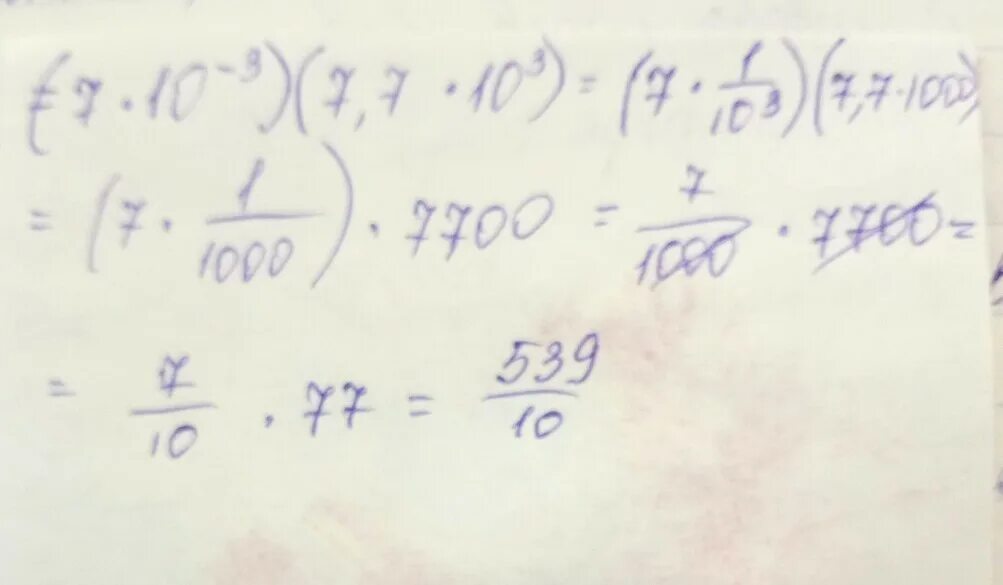 (7 · 10⁻³)(7,7 · 10³) = (7 · 1/10³)(7,7 · 1000)
= (7 · 1/1000) · 7700 = 7/1000 · 7700 =
= 7/10 · 77 = 539/10